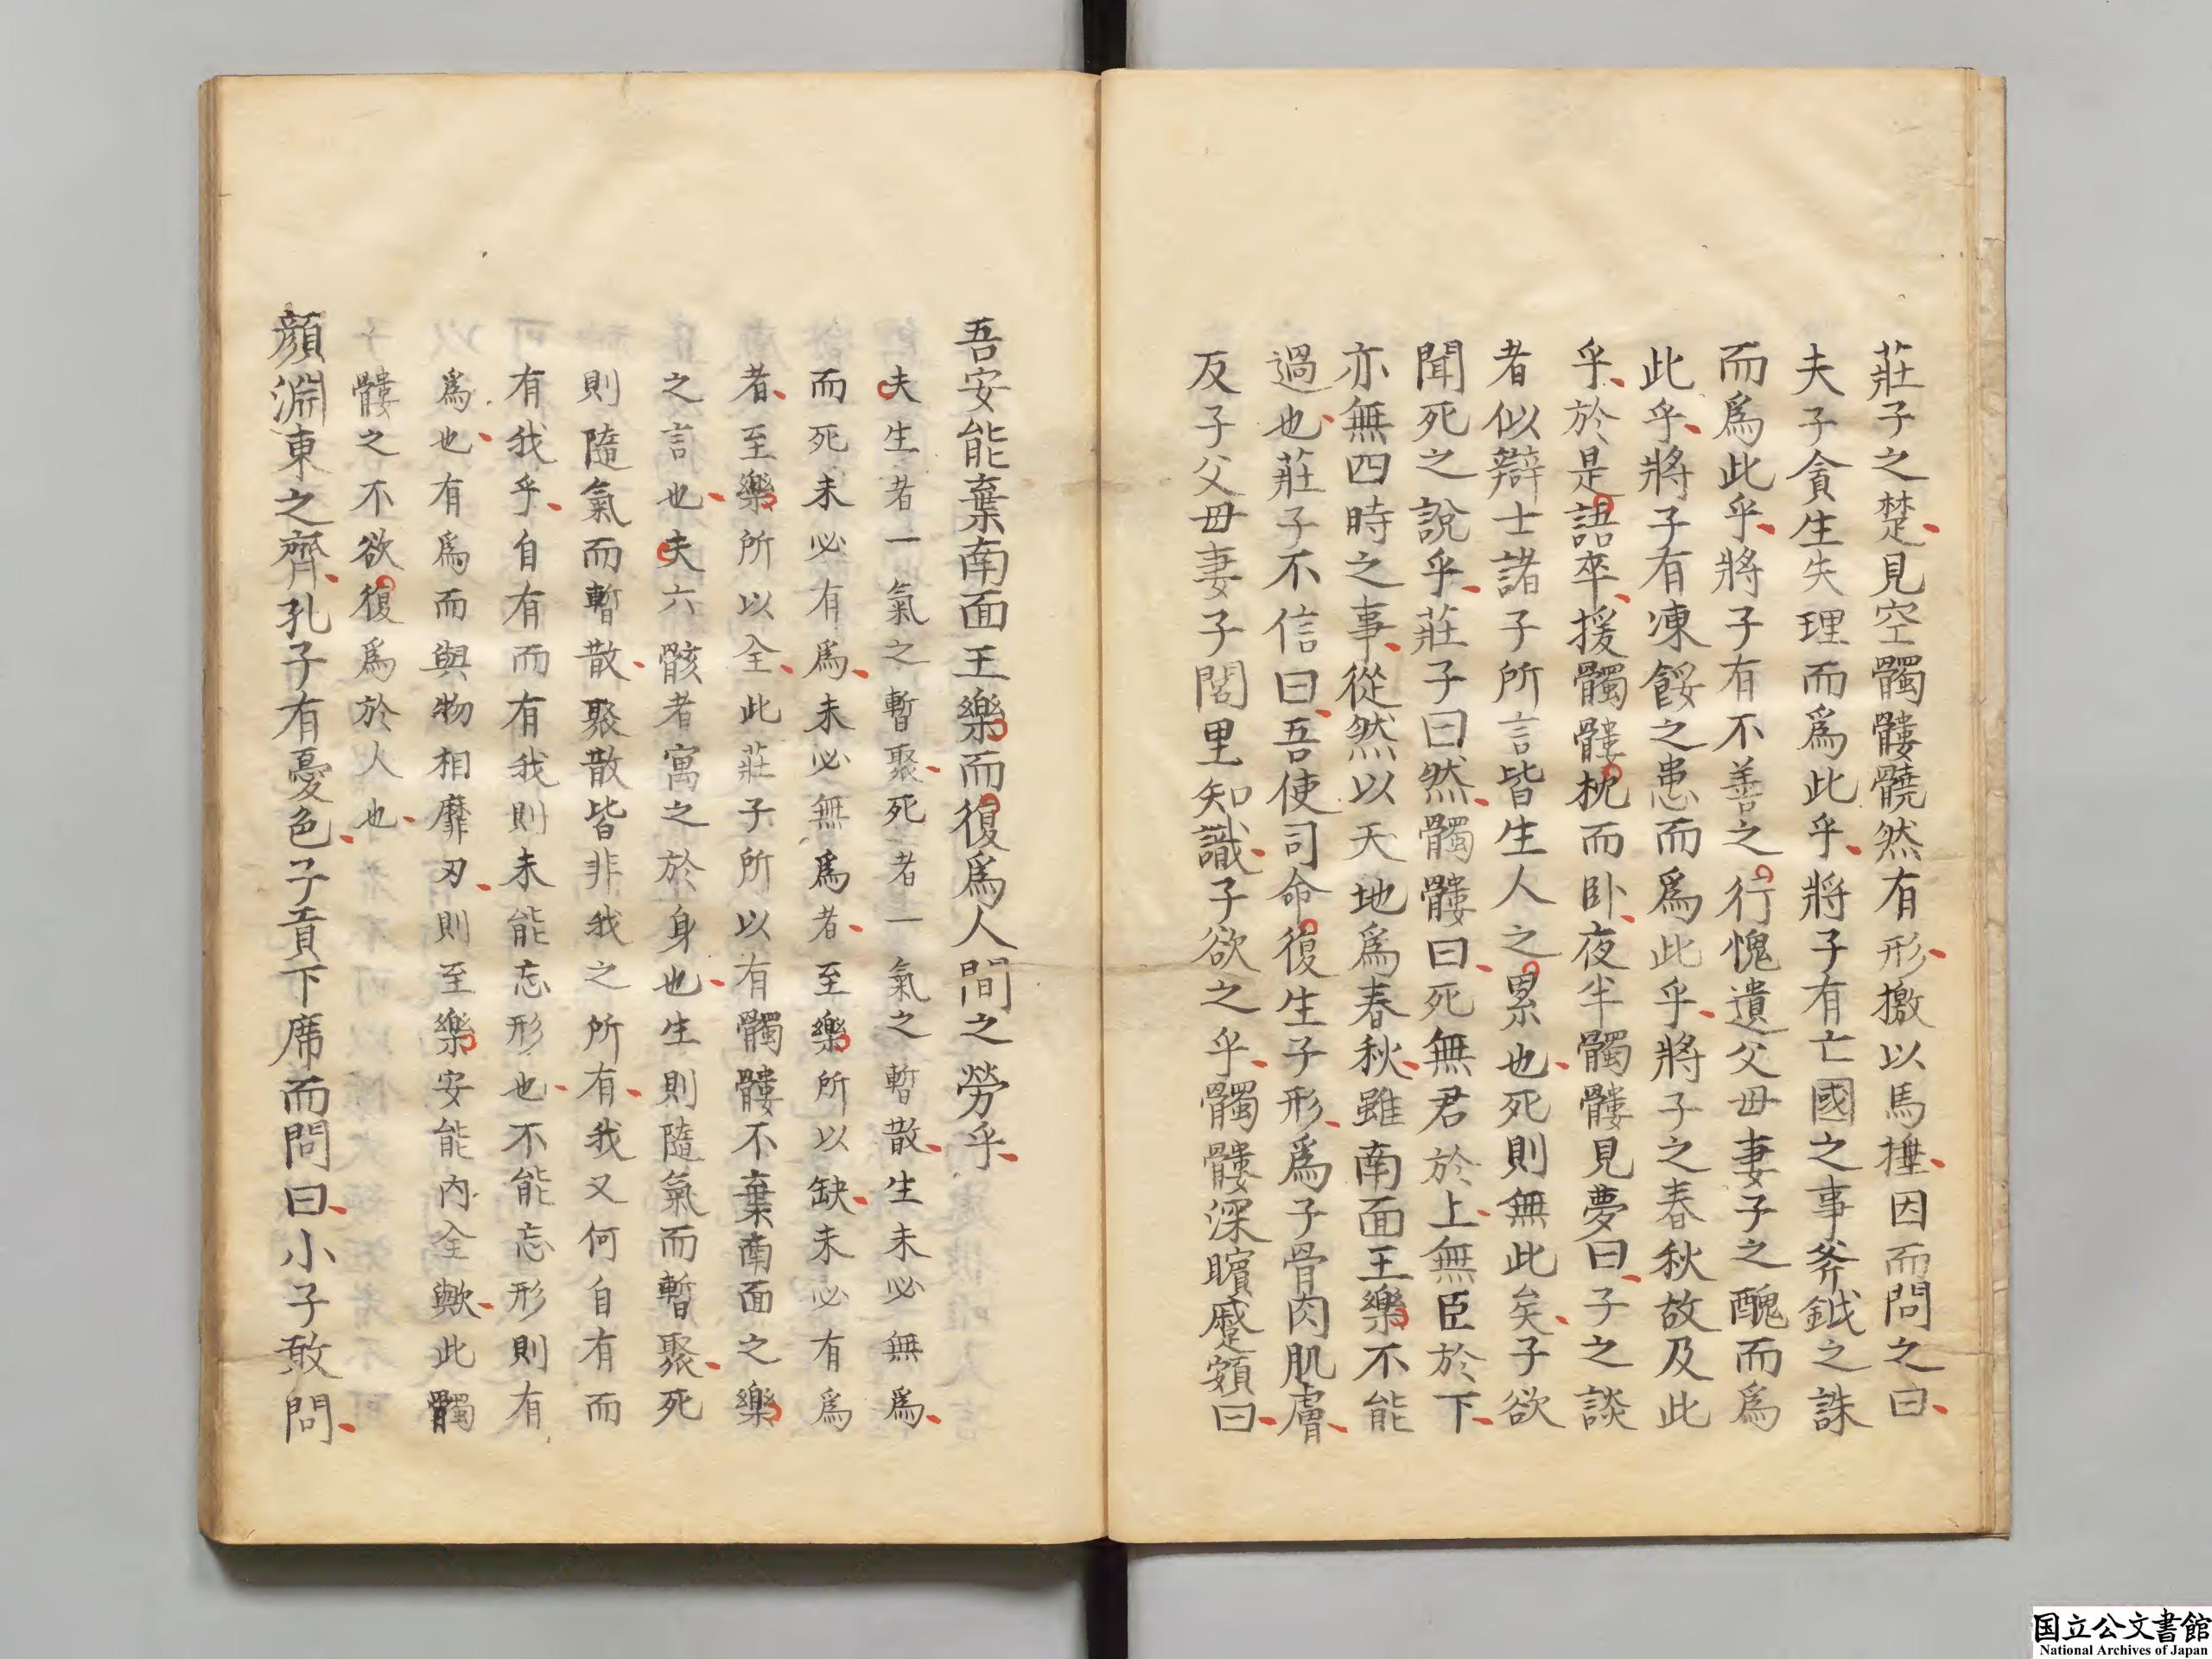 莊子之楚見空髑髏髐然有形撽以馬捶因而問之曰
夫子貪生失理而爲此乎將子有亡國之事斧鉞之誅
而爲此乎將子有不善之行愧遺父毋妻子之醜而爲
此乎將子有凍餒之患而爲此乎將子之春秋故及此
乎於是語卒援髑髏枕而卧夜半髑髏見夢曰子之談
者似辯士諸子所言皆生人之累也死則無此矣子欲
聞死之說乎莊子曰然髑髏曰死無君於上無臣於下
亦無四時之事從然以天地爲春秋雖南面王樂不能
過也莊子不信曰吾使司命復生子形爲子骨肉肌膚
反子父毋妻子閭里知識子欲之乎髑髏深矉蹙頞曰
吾安能棄南面王樂而復爲人間之勞乎
夫生者一氣之暫聚死者一氣之暫散生未必無爲
而死未必有爲未必無爲者至樂所以缺未必有爲
者至樂所以全此莊子所以有髑髏不棄南面之樂
之言也夫六骸者寓之於身也生則隨氣而暫聚死
則隨氣而暫散聚散皆非我之所有我又何自有而
有我乎自有而有我則未能忘形也不能忘形則有
爲也有爲而與物相靡刃則至樂安能內全歟此髑
髏之不欲復爲於人也
顏淵東之齊孔子有憂色子貢下席而問曰小子敢問
国立公文書館
National Archives of Japan